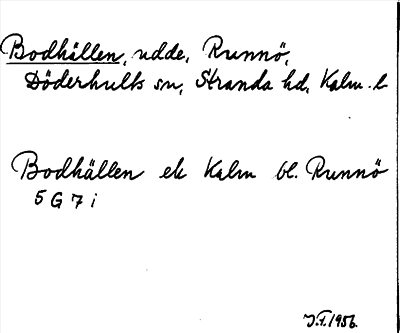 Bodhällen, udde, Runnö,
Döderhults sn, Stranda hd, Kalm. l
Bodhällen ek Kalm bl. Runnö
5 G 7 i
J.F. 1956.